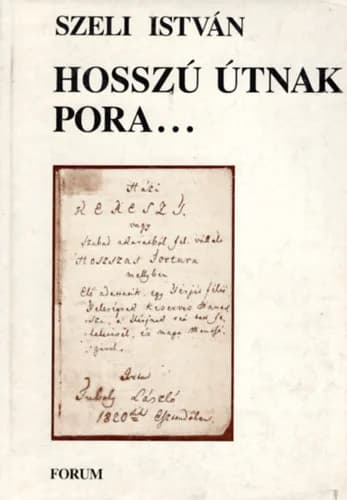 SZELI ISTVÁN
HOSSZÚ ÚTNAK
PORA...
Házi
KERESZT,
vagy
Szabad akaratból fel vállalt
Hoszszas Tortura
mellyben
Elő adatatik, egy Férjes féltő
és maga
László
1820 Esztendőben.
FORUM